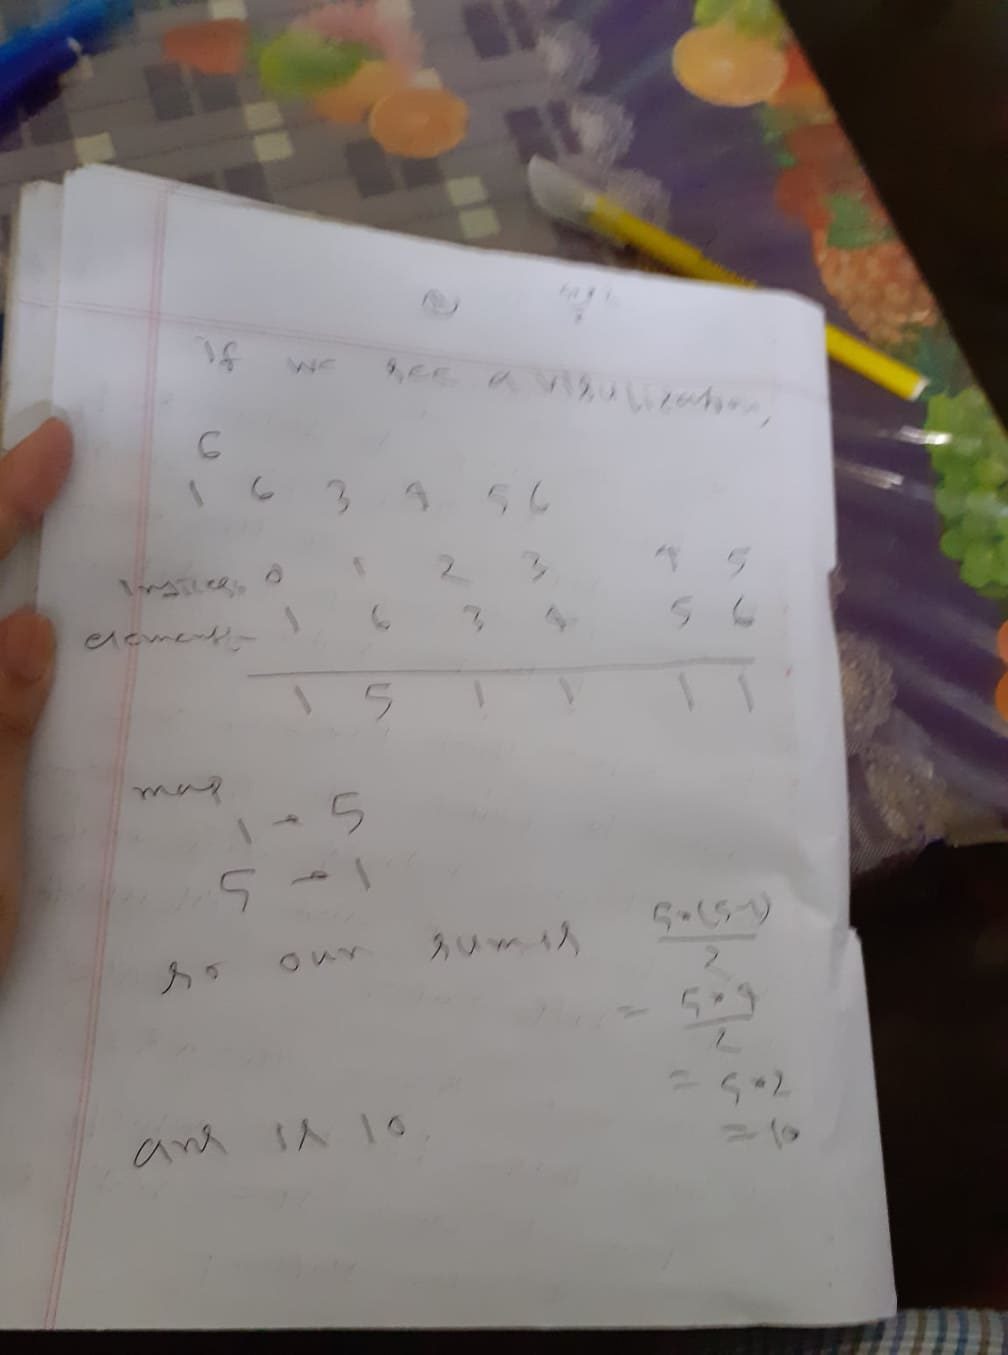 If we see a visulization,
6
1 6 3 4 5 6
indices 0 1 2 3 4 5
elements 1 6 3 4 5 6
1 5 1 1 1 1
map
1 → 5
5 → 1
so our sum is 5*(5-1)
2
= 5*4
2
= 5*2
= 10
ans is 10.